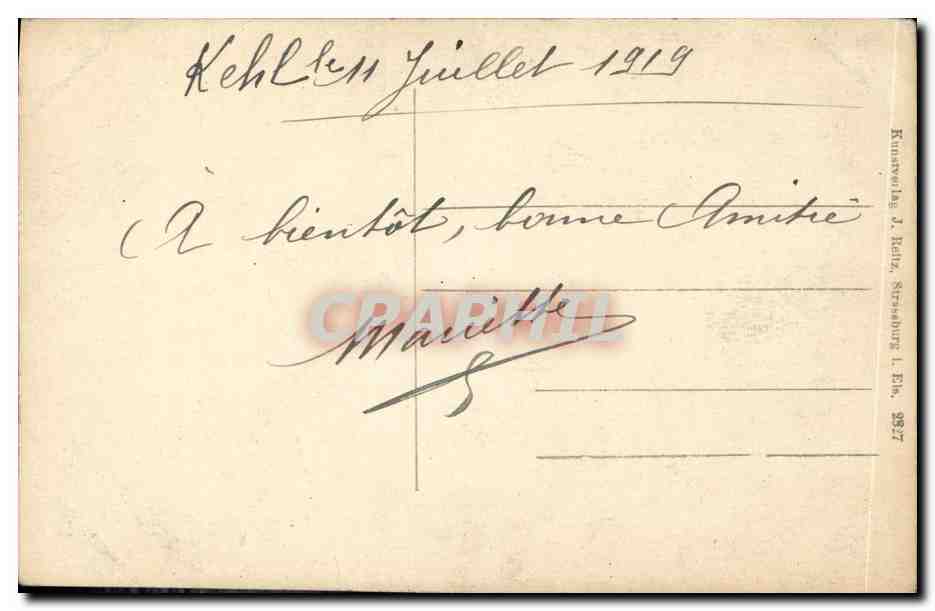 Kehl le 11 Juillet 1919
À bientôt, bonne Amitié
Mariette
CPAPHIL
Kunstverlag J. Reitz, Strassburg i. Els. 2827